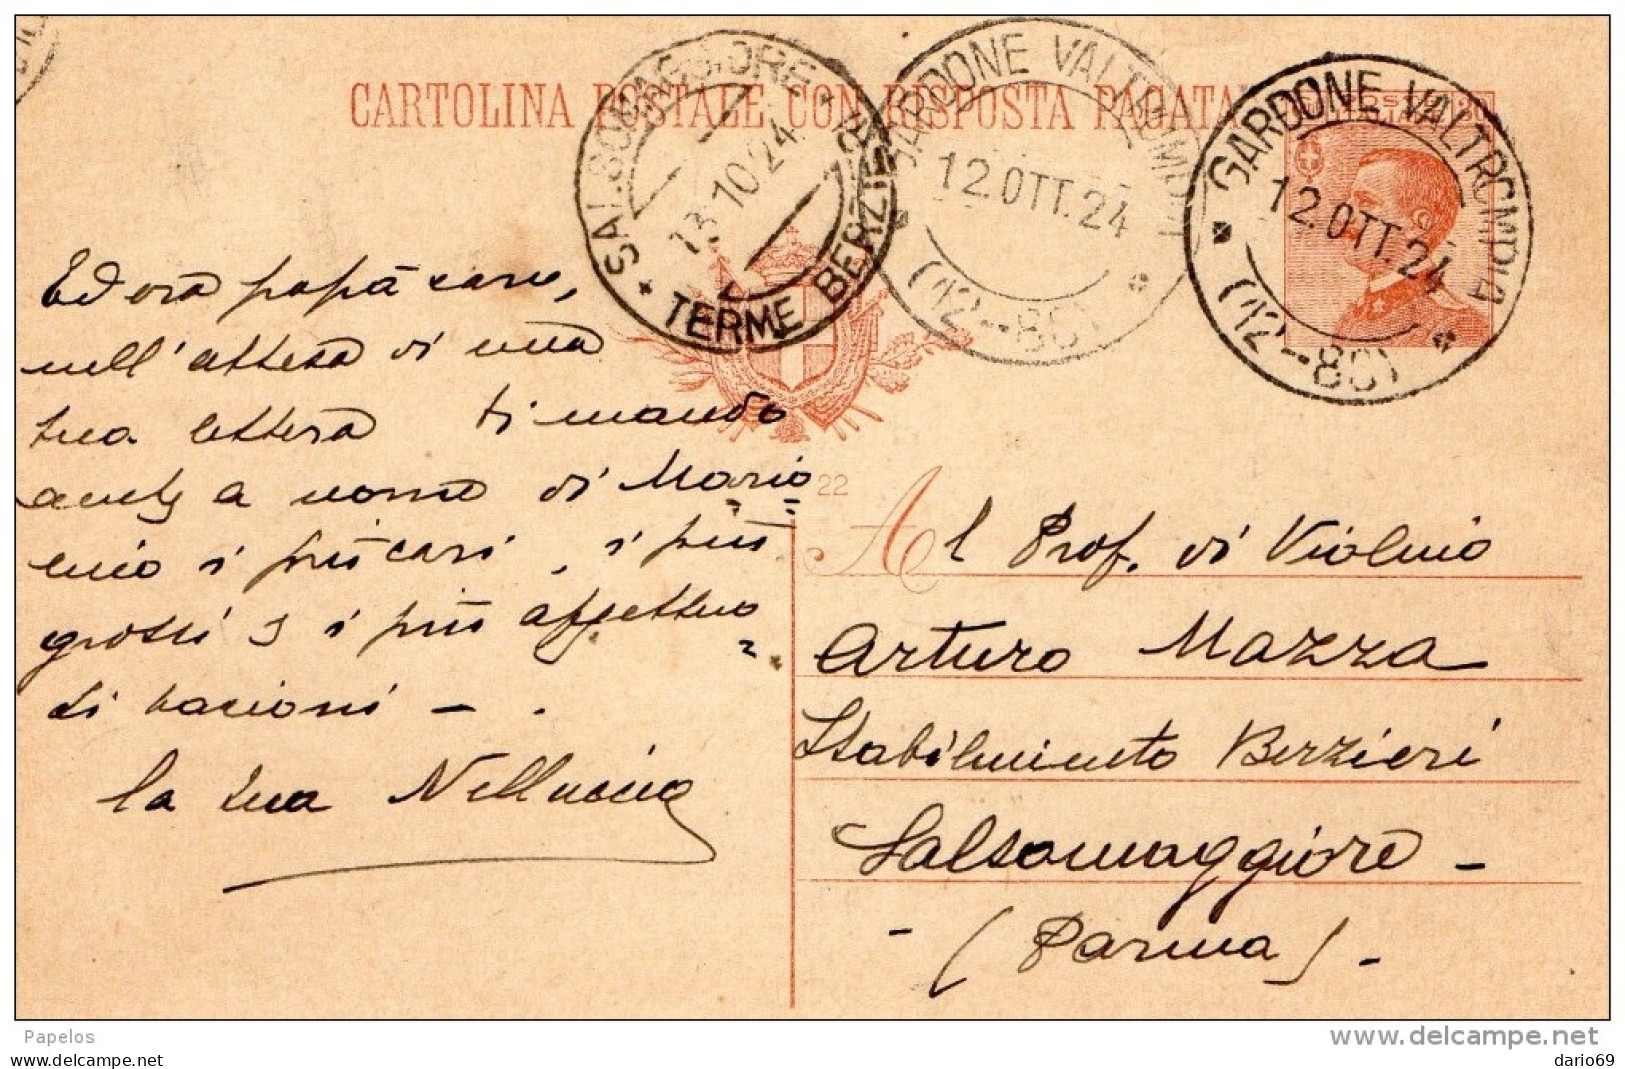 CARTOLINA POSTALE CON RISPOSTA PAGATA
SALSOMAGGIORE
13.10.24
TERME BERZIERI
GARDONE VALTROMPIA
12.OTT.24
(12--85)
GARDONE VALTROMPIA
12.OTT.24
(12--85)
Ed ora papà caro,
nell'attesa di una
tua lettera ti mando
anche a nome di Mario
mio i più cari, i più
grossi e i più affettuo
si bacioni - .
la tua Nelluccia
22
Al Prof. di Violino
Arturo Mazza
Stabilimento Berzieri
Salsomaggiore -
- (Parma) -
Papelos
www.delcampe.net
dario69